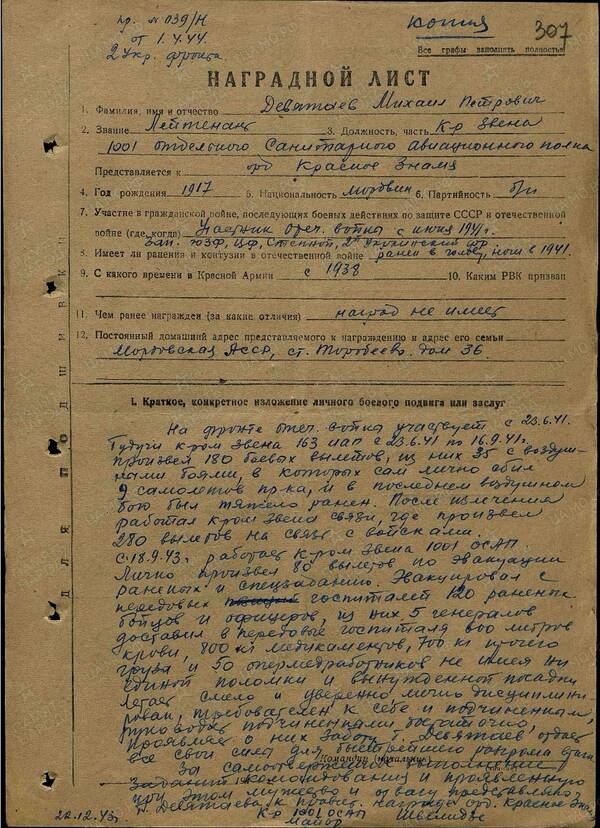 пр. № 039/н
от 1.4.44.
2 Укр. фронта
копия
307
Все графы заполнять полностью
НАГРАДНОЙ ЛИСТ
1. Фамилия, имя и отчество Девятаев Михаил Петрович
2. Звание Лейтенант 3. Должность, часть К-р звена
1001 отдельного Санитарного авиационного полка
Представляется к орд Красное Знамя
4. Год рождения 1917 5. Национальность мордвин 6. Партийность б/п
7. Участие в гражданской войне, последующих боевых действиях по защите СССР и отечественной
войне (где, когда) Участник отеч. войны с июня 1941 г.
Зап. ЮЗФ, ЦФ, Степной, 2й Украинский фр
8. Имеет ли ранения и контузии в отечественной войне ранен в голову, ноги в 1941.
9. С какого времени в Красной Армии с 1938 10. Каким РВК призван
11. Чем ранее награжден (за какие отличия) наград не имеет
12. Постоянный домашний адрес представляемого к награждению и адрес его семьи
Мордовская АССР, ст. Торбеево. дом 36
I. Краткое, конкретное изложение личного боевого подвига или заслуг
На фронте отеч. войны участвует с 23.6.41.
Будучи к-ром звена 163 ИАП с 23.6.41 по 16.9.41 г.
произвел 180 боевых вылетов, из них 35 с воздуш-
ными боями, в которых сам лично сбил
9 самолетов пр-ка, и в последнем воздушном
бою был тяжело ранен. После излечения
работал к-ром звена связи, где произвел
280 вылетов на связь с войсками.
С 18.9.43 г. работает к-ром звена 1001 ОСАП.
Лично произвел 80 вылетов по эвакуации
раненых и спецзаданию. Эвакуировал с
передовых госпиталей 120 раненых
бойцов и офицеров, из них 5 генералов
доставил в передовые госпиталя 600 литров
крови, 800 кг медикаментов, 700 кг прочего
груза и 50 опермедработников не имея ни
единой поломки и вынужденной посадки
Летает смело и уверенно лично дисциплини-
рован, требователен к себе и подчиненным,
руководит подчиненными достаточно,
проявляет о них заботу т. Девятаев, отдает
все свои силы для быстрейшего разгрома врага
Командир (начальник)
За самоотверженное выполнение
заданий командования и проявленную
при этом мужество и отвагу представляю
т. Девятаева к правит. награде орд. Красное Зна.
К-р 1001 ОСАП
майор
22.12.43 г.
Для подшивки